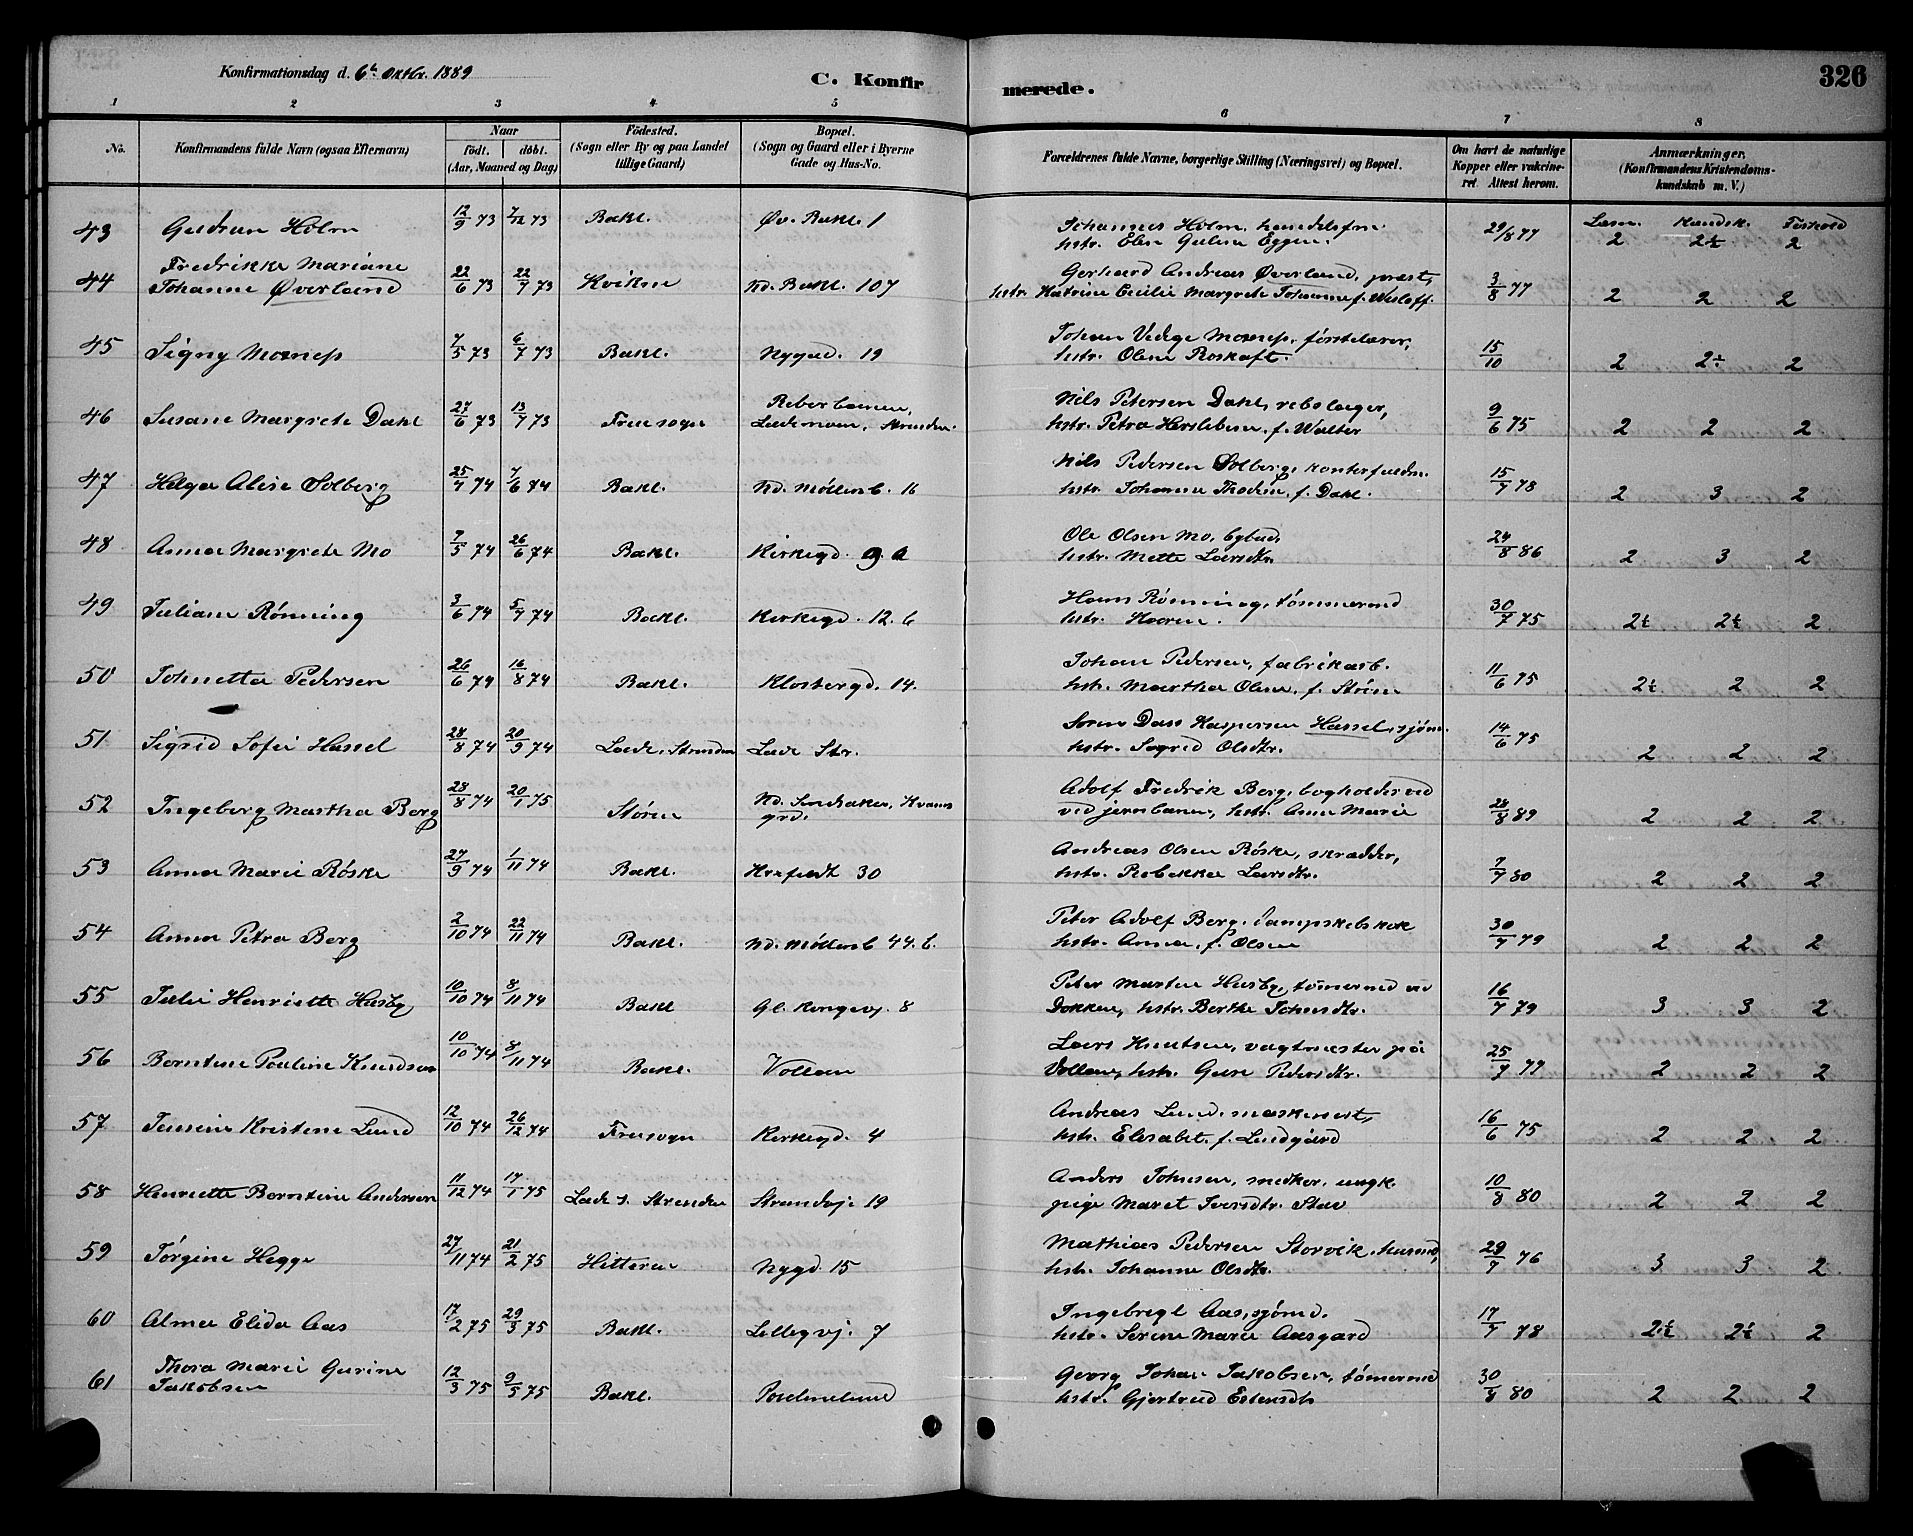 Konfirmationsdag d. 6te Oktbr. 1889
C. Konfirmerede.
326
1 2 3 4 5 6 7 8
No.
Konfirmandens fulde Navn (ogsaa Efternavn)
Naar født. døbt. (Aar, Maaned og Dag)
Födested. (Sogn eller By og paa Landet tillige Gaard)
Bopæl. (Sogn og Gaard eller i Byerne Gade og Hus-No.
Forældrenes fulde Navne, borgerlige Stilling (Næringsvei) og Bopæl.
Om havt de naturlige Kopper eller vakcineret. Attest herom.
Anmærkninger. (Konfirmandens Kristendomskundskab m. V.)
Læsn. Kundsk. Forhold
43 Gudrun Holm 12/9 73 7/12 73 Bakl. Øv. Bakl. 1 Johannes Holm, handelsfm. 29/8 77 2 2½ 2
hstr. Elen Gulina Eggen.
44 Fredrikke Mariane 22/6 73 22/7 73 Kvikne Nd. Bakl. 107 Gerhard Andreas Øverland, præst, 3/8 77 2 2 2
Johanne Øverland hstr. Katrine Cecilie Margrete Johanne f. Wisløff.
45 Signy Moxness 7/5 73 6/7 73 Bakl. Nygad. 19 Johan Vedege Moxness, førstelærer, 15/10 2 2½ 2
hstr. Oline Roskaft.
46 Susane Margrete Dahl 27/6 73 13/7 73 Fruesogn Reberbanen, Nils Petersen Dahl, rebslager, 9/6 75 2 2 2
Lademoen, Stranden. hstr. Petra Herslebine, f. Walter
47 Helga Alise Solberg 25/4 74 7/6 74 Bakl. Nd. Møllenb. 16 Nils Pedersen Solberg, kontorfuldm. 15/7 78 2 3 2
hstr. Johanna Thodine, f. Dahl.
48 Anna Margrete Mo 7/5 74 26/6 74 Bakl. Kirkegd. 9. a Ole Olsen Mo, bybud. 24/8 86 2 3 2
hstr. Mette Larsdtr.
49 Juliane Rønning 3/6 74 5/7 74 Bakl. Kirkegd. 12. b Hans Rønning, tømmermd 30/7 75 2½ 2½ 2
hstr. Karen.
50 Johnetta Pedersen 26/6 74 16/8 74 Bakl. Klostergd. 14. Johan Pedersen, fabrikarb. 11/6 75 2½ 2 2
hstr. Martha Oline, f. Strøm
51 Sigrid Sofie Hassel 28/8 74 20/9 74 Lade, Stranden Lade Str. Søren Dass Kaspersen Hassel, sjøm. 14/6 75 2 2 2
hstr. Sigrid Olsdtr.
52 Ingeborg Martha Berg 28/8 74 20/1 75 Støren Nd. Sindsaker, Kvams Adolf Fredrik Berg, bogholder ved 28/8 89 2 2 2
grd. ved jernbanen, hstr. Anna Marie
53 Anna Marie Røske 27/9 74 1/11 74 Bakl. 30 Andreas Olsen Røske, skrædder, 7/7 80 2 2 2
hstr. Rebekka Larsdtr.
54 Anna Petra Berg 2/10 74 22/11 74 Bakl. Nd. Møllenb 44. b. Peter Adolf Berg, dampskibskok 30/7 79 2 2 2
hstr. Anna, f. Olsen
55 Julie Henriette Husby 10/10 74 8/11 74 Bakl Gl. Kongevj. 8 Peter Martin Husby, tømermd ved 16/7 79 3 3 2
Dokken, hstr. Berthe Johnsdtr.
56 Berntine Pauline Knudsen 10/10 74 8/11 74 Bakl. Vollan Lars Knutsen, vagtmester på 25/7 77 2 2 2
Vollan, hstr. Guru Pedersdtr.
57 Jensine Kristine Lund 12/10 74 26/12 74 Fruesogn Kirkegd. 4 Andreas Lund, maskinist, 16/6 75 2 2 2
hstr. Elisabet, f. Lundgård
58 Henriette Berntine Andersen 11/12 74 17/1 75 Lade s. Stranden Strandvj. 19 Anders Johnsen, snedker, ungk. 10/8 80 2 2 2
pige Maret Iversdtr. Stav
59 Jørgine Hegge 27/11 74 21/2 75 Hitteren Nygd. 15 Mathias Pedersen Storvik, husmd, 29/7 76 3 3 2
hstr. Johanne Olsdtr.
60 Alma Elida Aas 17/2 75 29/3 75 Bakl. Lillegvj. 7 Ingebregt Aas, sjømd. 17/7 78 2½ 2½ 2
hstr. Serine Marie Aasgard
61 Thora Marie Gurine 12/3 75 9/5 75 Bakl. Georg Johan Jakobsen, tømermd 30/8 80 2 2 2
Jakobsen hstr. Gjertrud Estensdtr